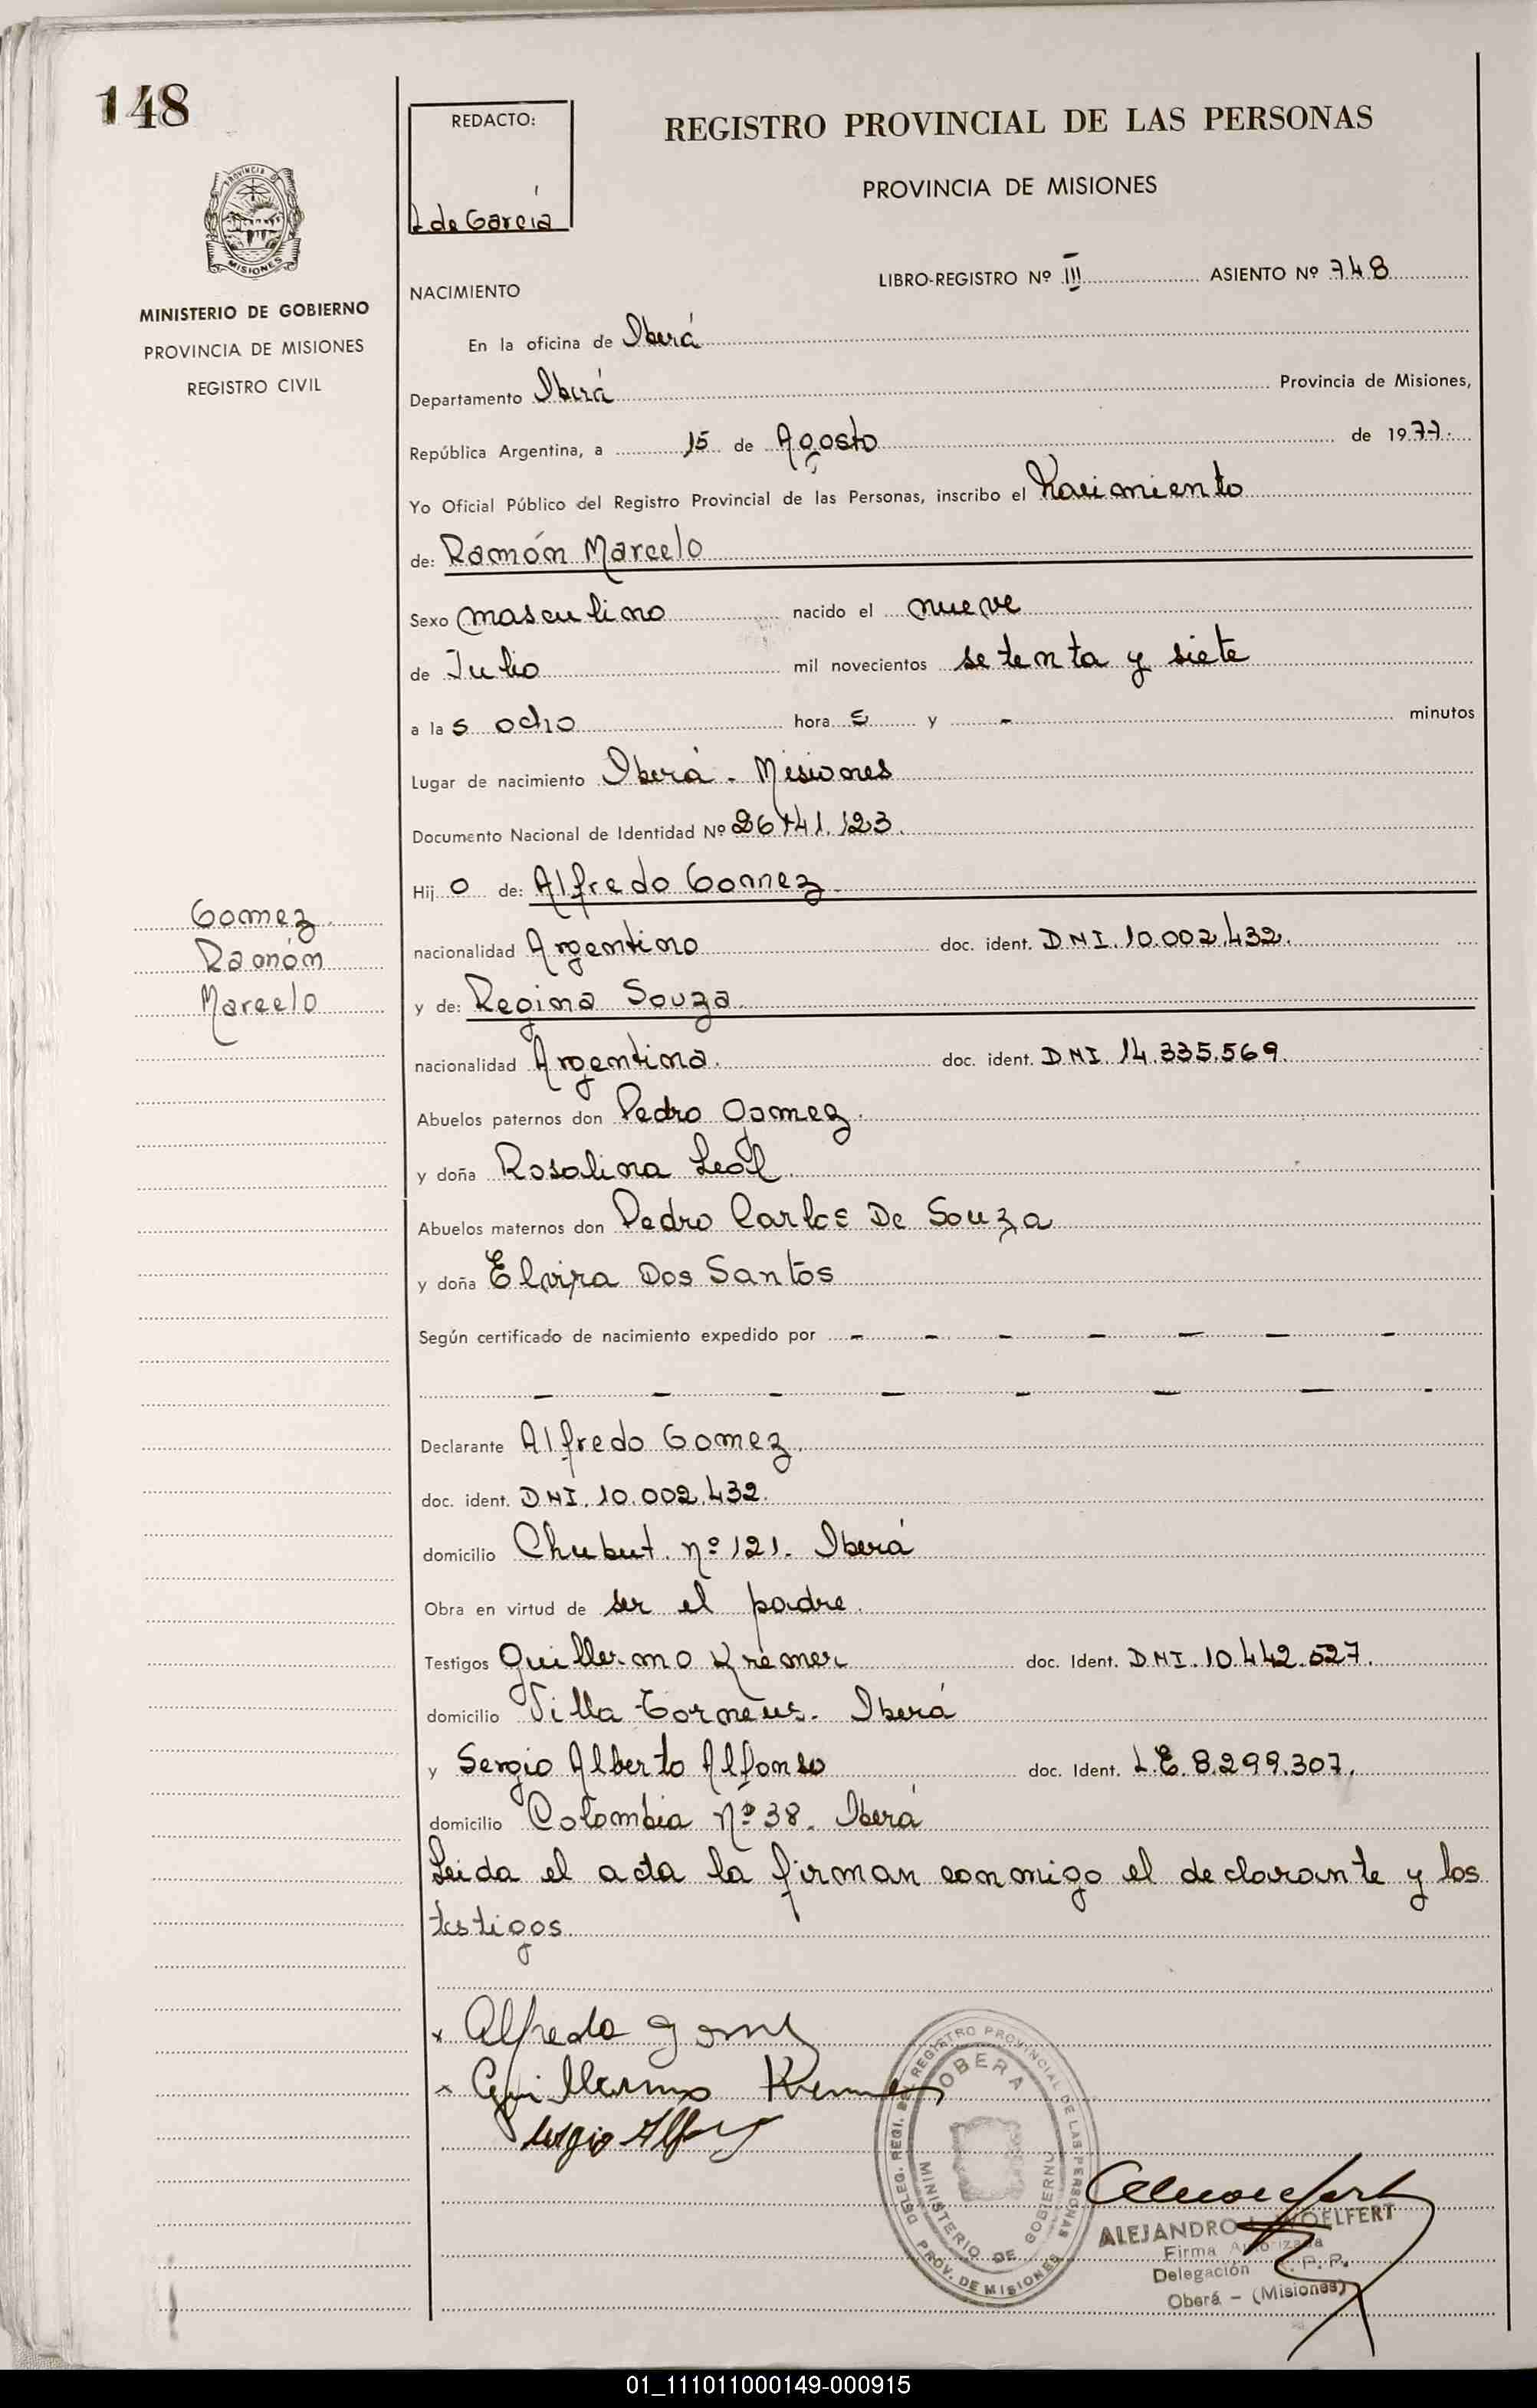 148
REDACTO:
de García
REGISTRO PROVINCIAL DE LAS PERSONAS
PROVINCIA DE MISIONES
PROVINCIA DE
MISIONES
MINISTERIO DE GOBIERNO
PROVINCIA DE MISIONES
REGISTRO CIVIL
LIBRO-REGISTRO Nº III ASIENTO Nº 748
NACIMIENTO
En la oficina de Oberá
Departamento Oberá Provincia de Misiones,
República Argentina, a 15 de Agosto de 1977.
Yo Oficial Público del Registro Provincial de las Personas, inscribo el Nacimiento
de: Ramón Marcelo
Sexo masculino nacido el nueve
de Julio mil novecientos setenta y siete
a las ocho horas y - minutos
Lugar de nacimiento Oberá - Misiones
Documento Nacional de Identidad Nº 26141.123.
Hijo de: Alfredo Gomez.
Gomez
Ramón
Marcelo
nacionalidad Argentino doc. ident. DNI. 10.002.432.
y de: Regina Souza
nacionalidad Argentina. doc. ident. DNI. 14.335.569.
Abuelos paternos don Pedro Gomez.
y doña Rosalina Leal
Abuelos maternos don Pedro Carlos De Souza
y doña Elvira Dos Santos
Según certificado de nacimiento expedido por - - - - - - -
- - - - - - - -
Declarante Alfredo Gomez.
doc. ident. DNI. 10.002.432.
domicilio Chubut. nº 121. Oberá
Obra en virtud de ser el padre.
Testigos Guillermo Kremer doc. Ident. DNI. 10.442.527.
domicilio Villa Torneus. Oberá
y Sergio Alberto Alfonso doc. Ident. L.E. 8.299.307.
domicilio Colombia Nº 38. Oberá
Leida el acta la firman conmigo el declarante y los
testigos.
x Alfredo Gomez
x Guillermo Kremer
Sergio Alfonso
DELEG. REGI. DEL REGISTRO PROVINCIAL DE LAS PERSONAS
OBERA
MINISTERIO DE GOBIERNO
PROV. DE MISIONES
ALEJANDRO WOELFERT
Firma Autorizada
Delegación R. P. P.
Oberá - (Misiones)
01_111011000149-000915